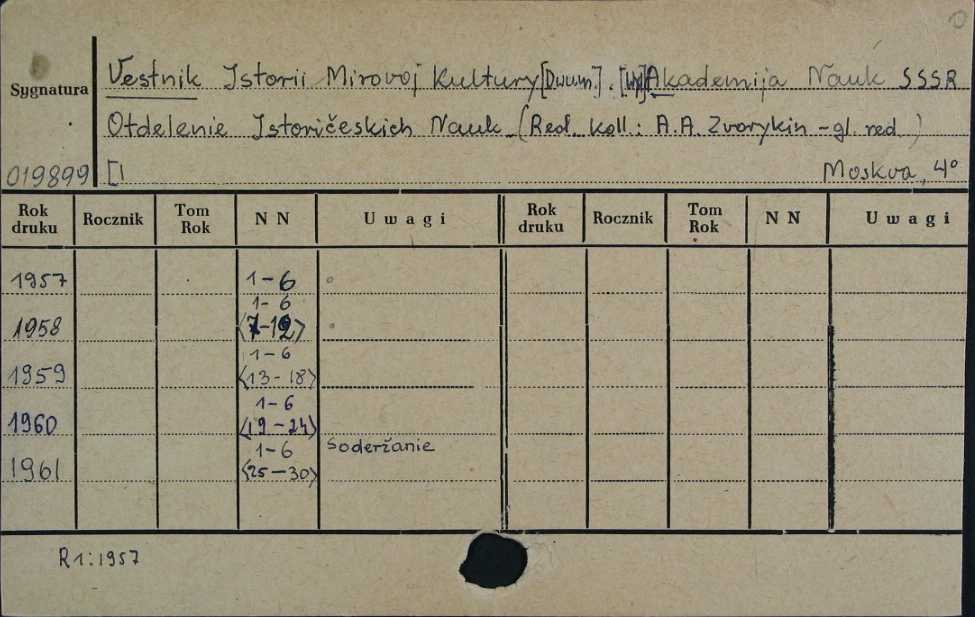 Vestnik Istorii Mirovoj Kultury [Dwum.]. [Wyd] Akademija Nauk SSSR
Sygnatura
Otdelenie Istoričeskich Nauk. (Red. koll.: A.A. Zvorykin - gl. red.)
019899 [1 Moskva, 4°
Rok druku Rocznik Tom Rok NN Uwagi Rok druku Rocznik Tom Rok NN Uwagi
1957 1-6
1-6
1958 <7-12>
1-6
1959 <13-18>
1-6
1960 <19-24>
1-6 Soderžanie
1961 <25-30>
R1:1957